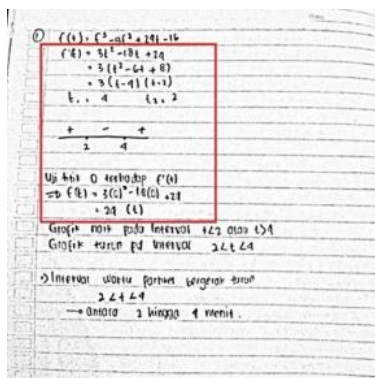 ① f(t) = t³ - 9t² + 24t - 16
f'(t) = 3t² - 18t + 24
= 3(t² - 6t + 8)
= 3(t-4)(t-2)
t₁ = 4 t₂ = 2
+ - +
2 4
Uji titik 0 terhadap f'(t)
⇒ f'(t) = 3(0)² - 18(0) + 24
= 24 (+)
Grafik naik pada interval t<2 atau t>4
Grafik turun pd interval 2<t<4
⇒ Interval waktu partikel bergerak turun
2<t<4
→ antara 2 hingga 4 menit.